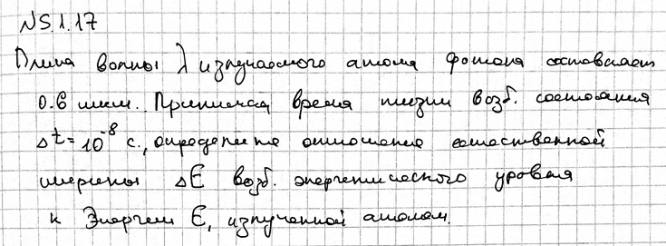 №5.1.17
Длина волны λ излучаемого атома фотона составляет
0.6 мкм. Принимая время жизни возб. состояния
Δt = 10⁻⁸ с., определите отношение естественной
ширины ΔE возб. энергетического уровня
к Энергии E, излученной атомом.